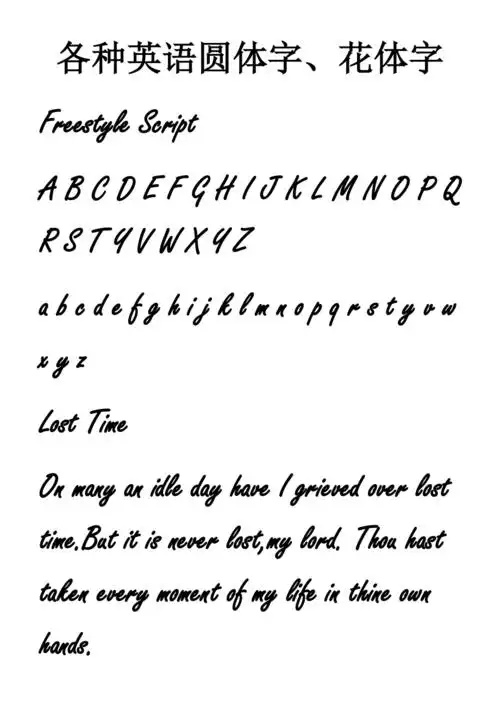 各种英语圆体字、花体字
Freestyle Script
A B C D E F G H I J K L M N O P Q
R S T Y V W X Y Z
a b c d e f g h i j k l m n o p q r s t y v w
x y z
Lost Time
On many an idle day have I grieved over lost
time.But it is never lost,my lord. Thou hast
taken every moment of my life in thine own
hands.